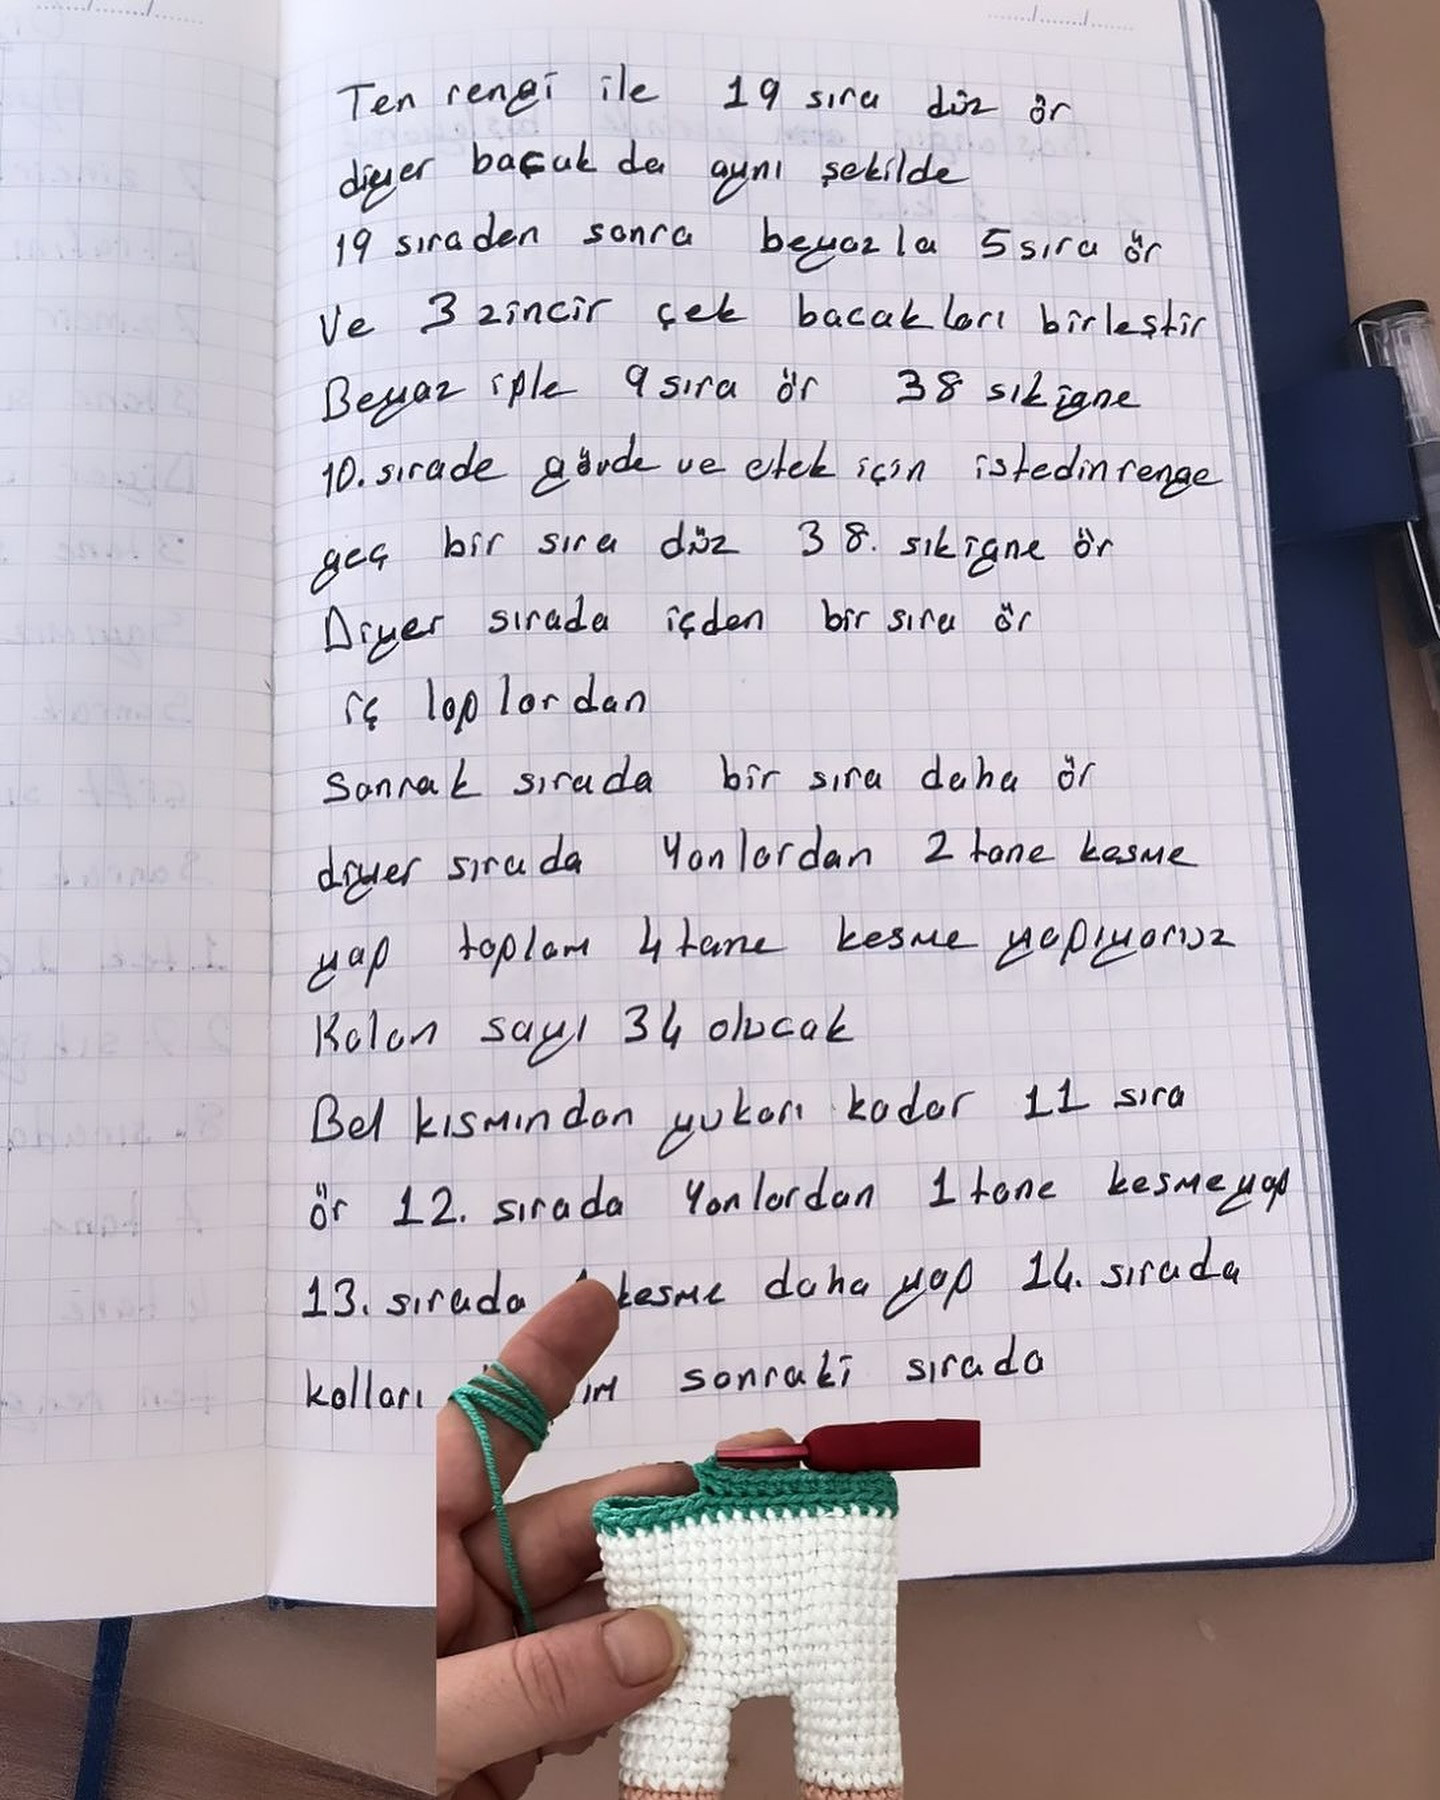 Ten rengi ile 19 sıra düz ör
diyer bacak da aynı şekilde
19 sıraden sonra beyazla 5 sıra ör
Ve 3 zincir çek bacakları birleştir
Beyaz iple 9 sıra ör 38 sıkigne
10. sırade gövde ve etek için istedin renge
geç bir sıra düz 38. sıkigne ör
Diyer sırada içden bir sıra ör
iç loplardan
Sonrak sırada bir sıra daha ör
diyer sırada Yanlardan 2 tane kesme
yap toplam 4 tane kesme yapıyoruz
Kalan sayı 34 olucak
Bel kısmından yukarı kadar 11 sıra
ör 12. sırada Yanlardan 1 tane kesme yap
13. sırada kesme daha yap 14. sırada
kolları sonraki sırada